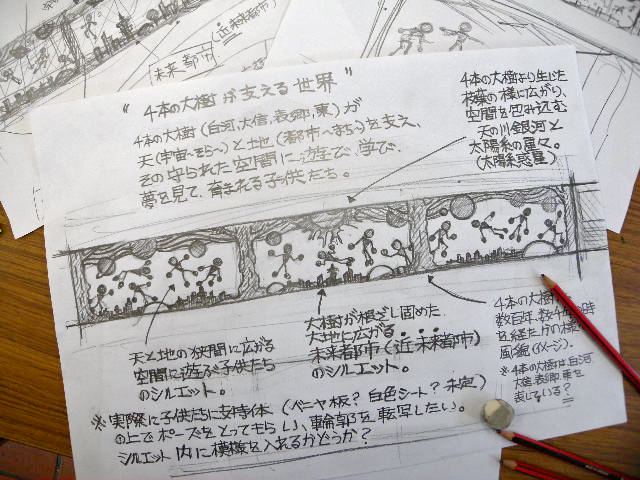 未来都市
(近未来都市)
"4本の大樹が支える世界"
4本の大樹(白河、大信、表郷、東)が
天(宇宙〜そら〜)と地(都市〜まち〜)を支え、
その守られた空間に遊び、学び、
夢を見て、育まれる子供たち。
4本の大樹より生じた
枝葉の様に広がり、
空間を包み込む
天の川銀河と
太陽系の星々。
(太陽系惑星)
天と地の狭間に広がる
空間に遊ぶ子供たち
のシルエット。
大樹が根ざし固めた
大地に広がる
未来都市(近未来都市)
のシルエット。
4本の大樹
数百年、数千
を経た
風貌(イメージ)。
※4本の大樹は、白河
大信、表郷、東を
表している?
※実際に子供たちに支持体(ベニヤ板?白色シート?未定)
の上でポーズをとってもらい、輪郭を転写したい。
シルエット内に模様を入れるかどうか?